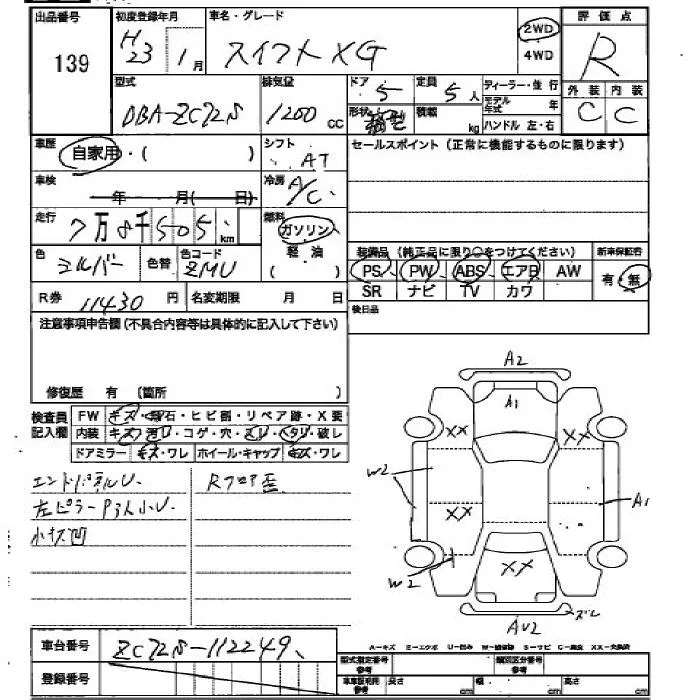 出品番号
139
初度登録年月
H23 1月
車名・グレード
スイフト XG
2WD
4WD
評価点
R
外装 内装
C C
型式
DBA-ZC72S
排気量
1200 cc
ドア
5
定員
5人
形状
積載
kg
ディーラー・並行
モデル年式 年
ハンドル 左・右
車歴
自家用・( )
シフト
AT
セールスポイント(正常に機能するものに限ります)
車検
年 月( 日)
冷房
A/C
走行
7万8千505 km
燃料
ガソリン
軽・油
( )
色
シルバー
色替
色コード
ZMU
装備品(純正品に限り○をつけてください)
新車保証書
PS PW ABS エアB AW
SR ナビ TV カワ
有・無
R券 11430 円
名変期限 月 日
後日品
注意事項申告欄(不具合内容等は具体的に記入して下さい)
修復歴 有 (箇所 )
検査員記入欄
FW キズ・飛石・ヒビ割・リペア跡・X要
内装 キズ・汚レ・コゲ・穴・ヘタリ・破レ
ドアミラー キズ・ワレ ホイール・キャップ キズ・ワレ
小U
Rフロア歪
A2
A1
XX
XX
W2
XX
A1
W2
XX
ズレ
AU2
A-キズ E-エクボ U-凹み W-補修跡 S-サビ C-腐食 XX-交換済
車台番号
ZC72S-112249
登録番号
型式指定番号 参考
類別区分番号 参考
車車証明用 参考
長さ cm
幅 cm
高さ cm